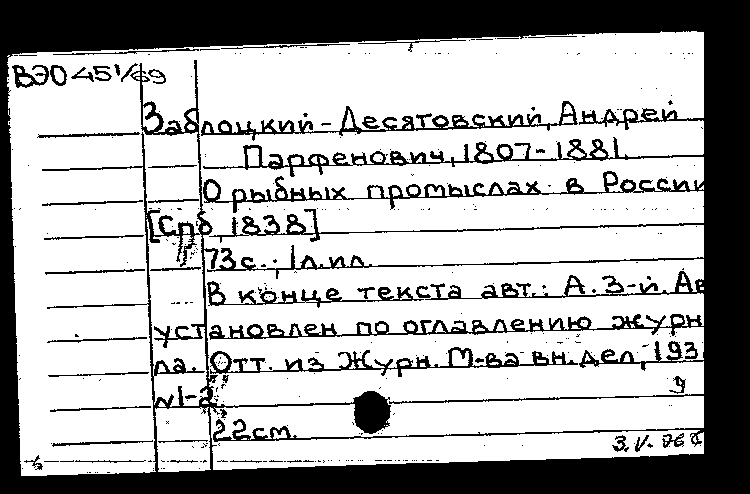 ВЭО 451/69
Заблоцкий-Десятовский, Андрей
Парфенович, 1807-1881.
О рыбных промыслах в России
[Спб, 1838]
73 с.; 1 л. ил.
В конце текста авт.: А. З-й. Ав
установлен по оглавлению журн
ла. Отт. из Журн. М-ва вн. дел, 193
№1-2
9
22 см.
3.V.